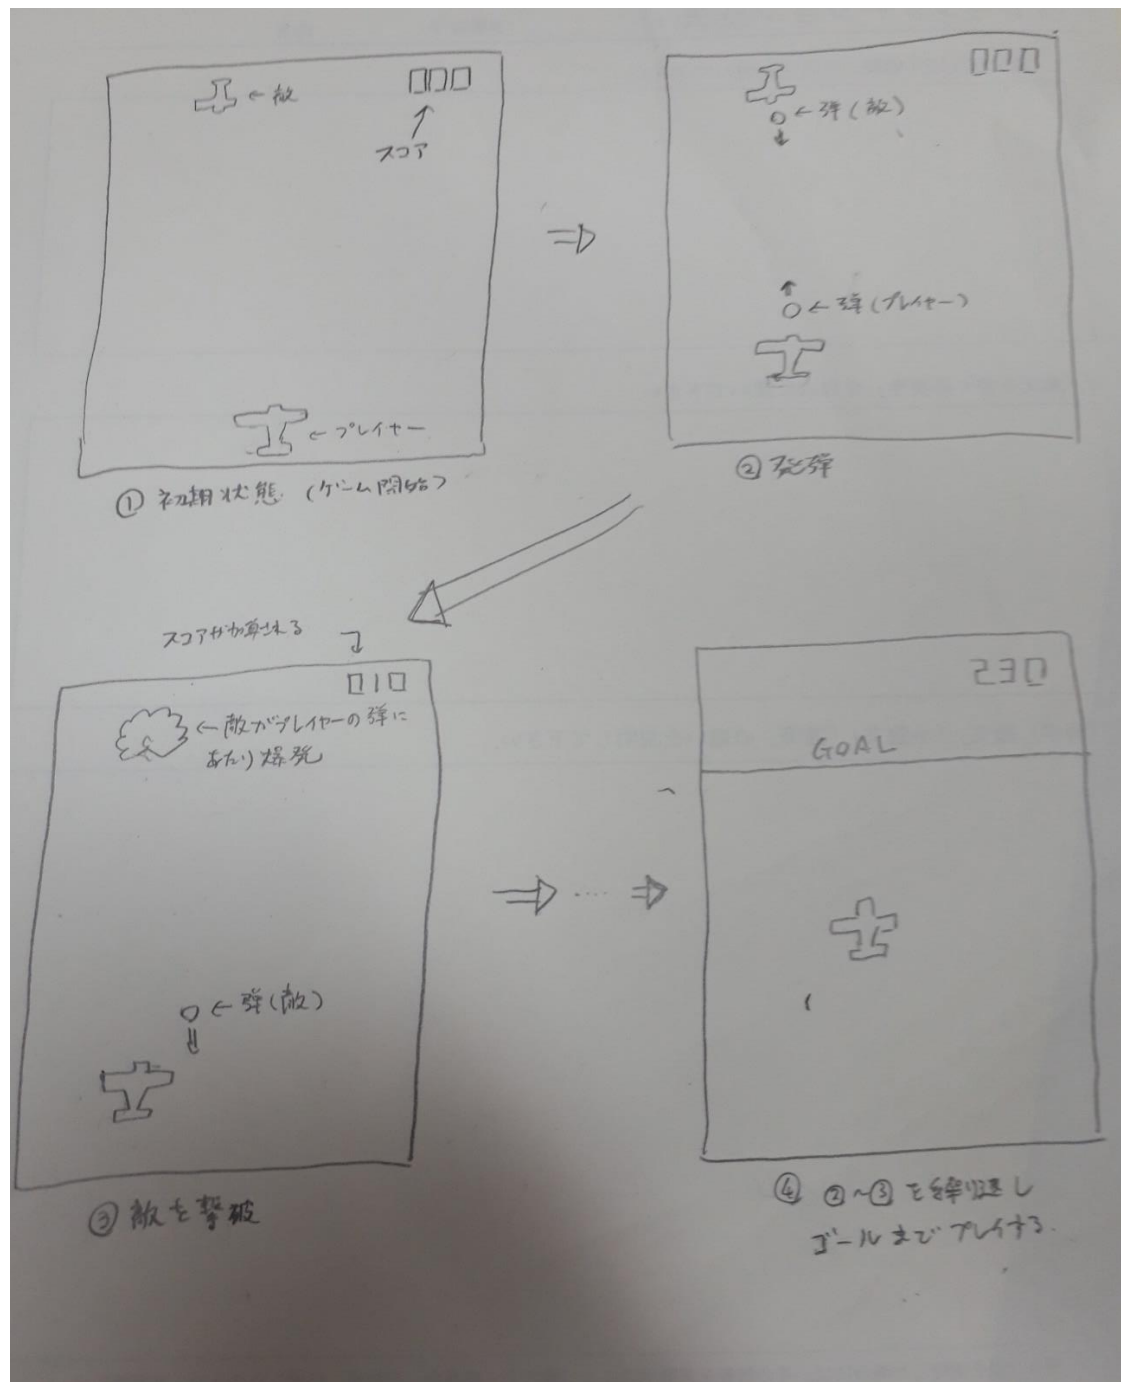 000
←敵
スコア
←プレイヤー
①初期状態 (ゲーム開始)
000
←弾(敵)
←弾(プレイヤー)
②発弾
スコアが加算される
010
←敵がプレイヤーの弾に
あたり爆発
←弾(敵)
③敵を撃破
230
GOAL
④ ②～③を繰り返し
ゴールまでプレイする.